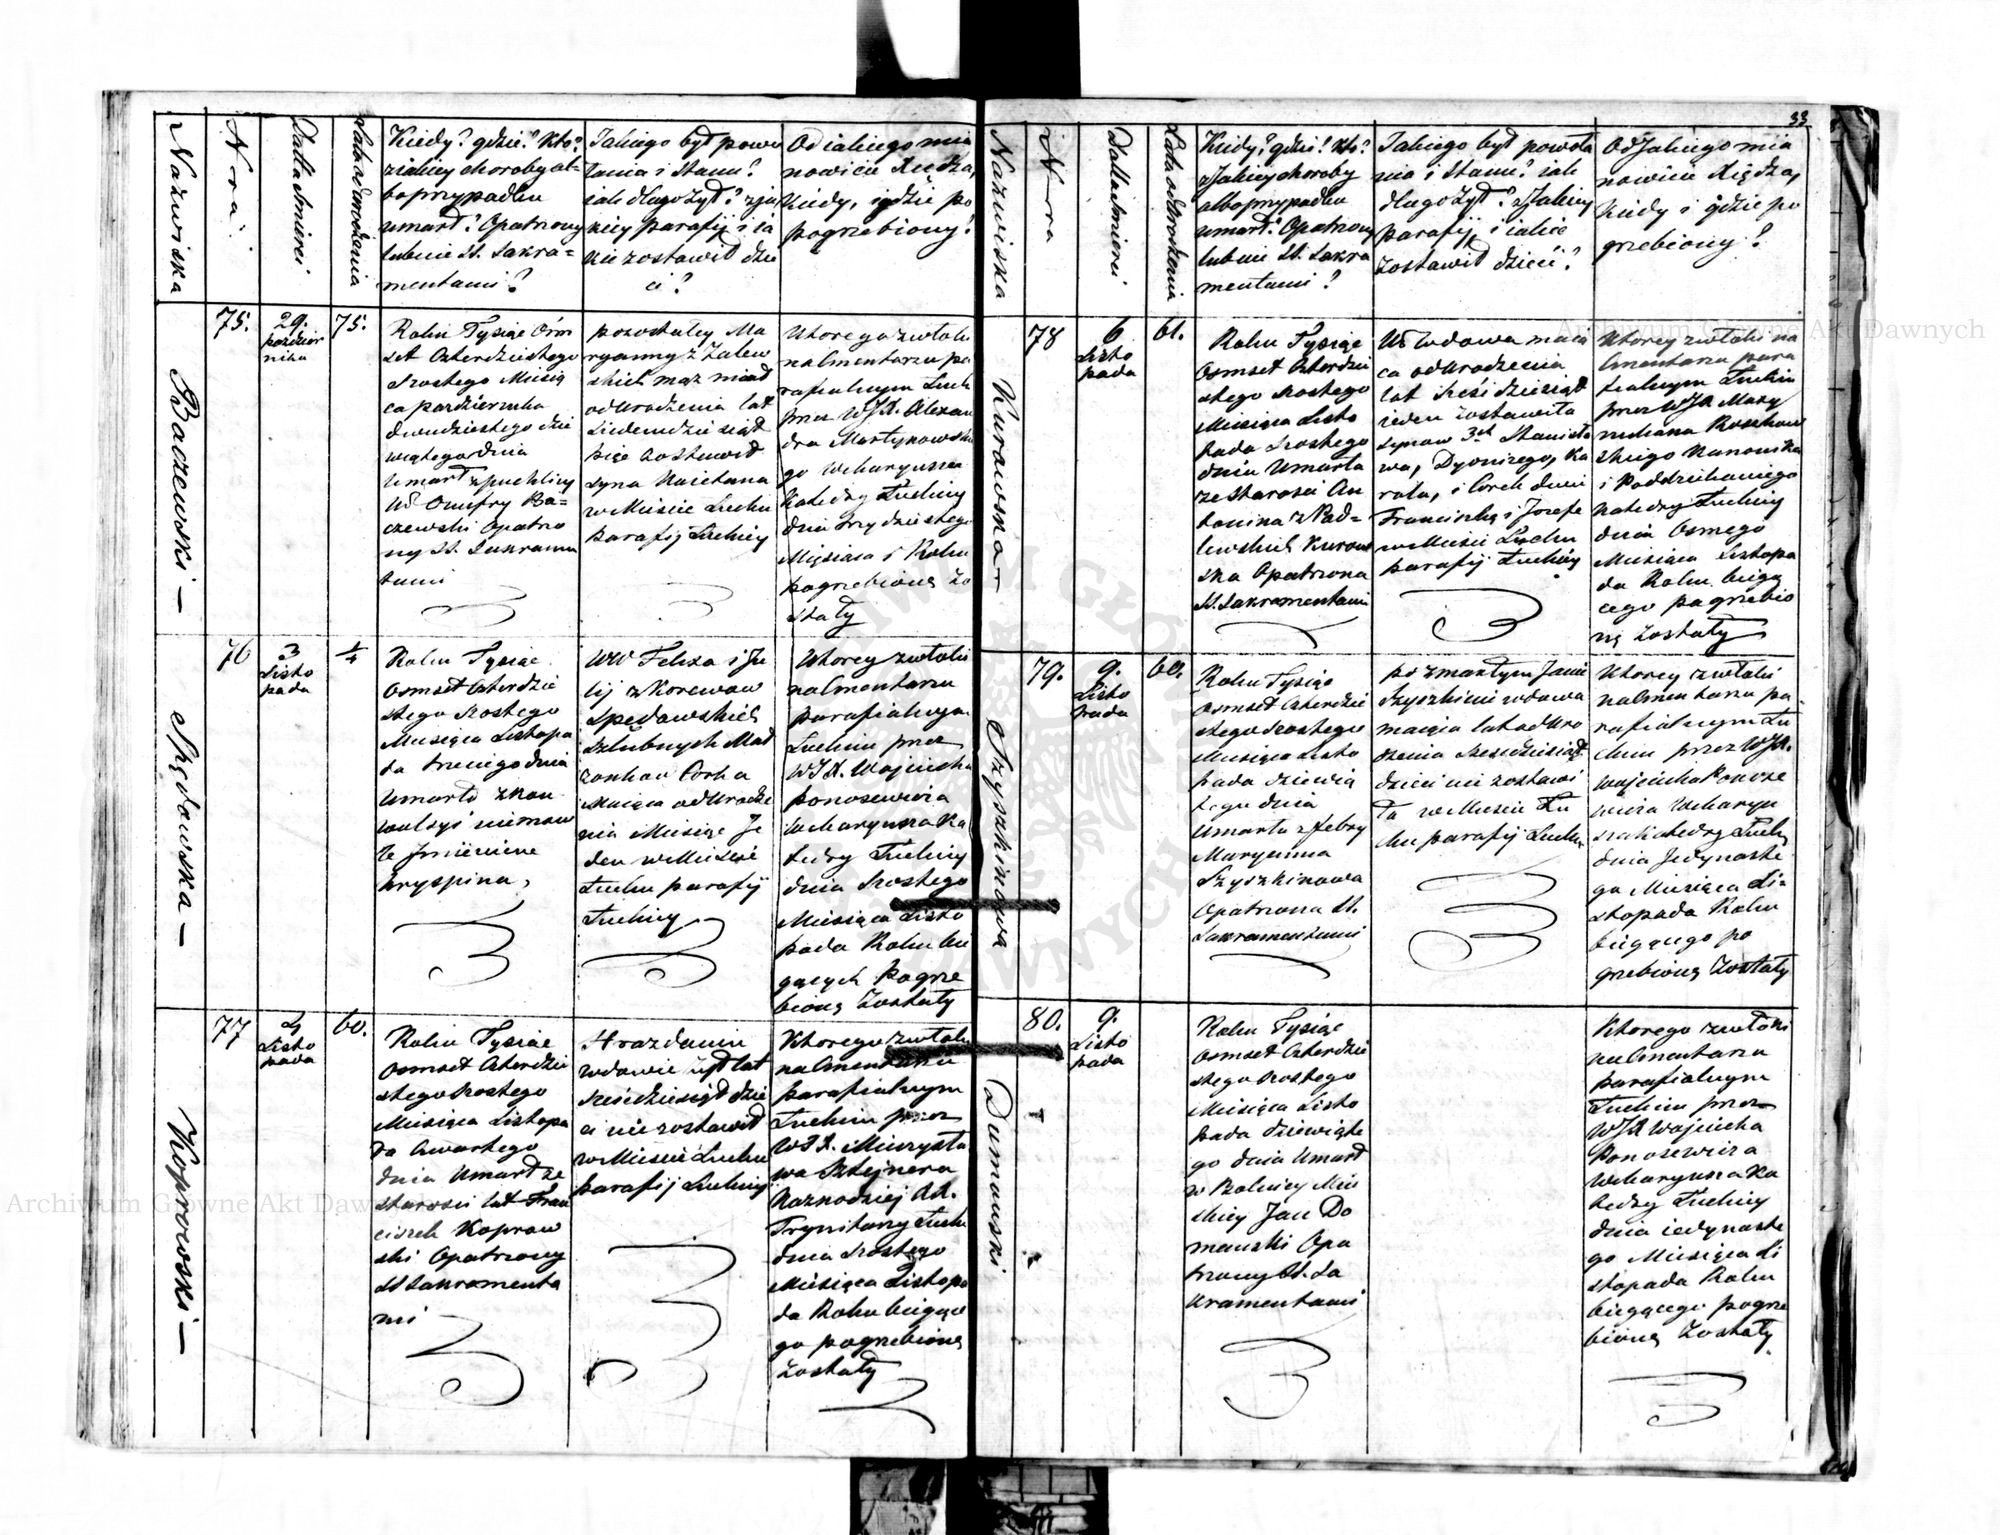 33
Nazwiska
Nra
Datta śmierci
Lata od urodzenia
Kiedy? gdzie? kto?
z iakiey choroby al-
bo przypadku
umarł? Opatrzony
lub nie SS. Sakra=
mentami?
Jakiego był powo
łania i Stanu?
iak długo żył? z ja
kiey parafij i ia
kie zostawił dzie
ci?
Od iakiego mia
nowicie Xiędza,
kiedy, i gdzie po
pogrzebiony?
Baczewski —
75.
29.
paździer
nika
75.
Roku Tysiąc Óśm
set Czterdziestego
Szostego Miesią
ca października
dwudziestego dzie
wiątego dnia
Umarł z puchliny
W. Onufry Ba=
czewski Opatrzo
ny SS. Sakramen
tami
pozostałey Ma
ryanny z Zalew
skich mąż miał
od Urodzenia lat
Siedemdziesiąt
pięć Zostawił
Syna Kaietana
w Mieście Łucku
parafij Łuckiey
Którego zwłoki
na Cmentarzu pa
rafialnym Łuck
przez WJX. Alexan
dra Martynowskie
go Wikaryusza
Katedry Łuckiey
dnia trzydziestego
Miesiąca i Roku
pogrzebione Zo
stały
Spędowska —
76
3
Listo
pada
1/4
Roku Tysiąc
Osmset Czterdzie
stego Szostego
Miesiąca Listopa
da trzeciego dnia
Umarła z Kon
wulsyi niemow
le Jmieniem
Kryspina,
WW Felixa i Ju
lij z Korewow
Spędowskich
Szlubnych Mał
żonkow Corka
Maiąca od Urodze
nia Miesiąc Je
den w Mieście
Łucku parafij
Łuckiey
Ktorey zwłoki
na Cmentarzu
parafialnym
Łuckim przez
WJX. Wojciecha
Ponosewicza
Wikaryusza Ka
tedry Łuckiey
dnia Szostego
Miesiąca Listo
pada Roku bie
gących pogrze
bione Zostały
Koprowski —
77
4
Listo
pada
60.
Roku Tysiąc
Osmset Czterdzie
stego Szostego
Miesiąca Listopa
da Czwartego
dnia Umarł ze
Starosci lat Fran
ciszek Koprow
ski Opatrzony
SS Sakramenta
mi
wdowiec żył lat
Sześćdziesiąt dzie
ci nie zostawił
w Mieście Łucku
parafij Łuckiey
Ktorego zwłoki
na Cmentarzu
parafialnym
Łuckim przez
WJX. Mieczysła
wa Sztejnera
Kaznodziej XX.
Trynitarzy Łuck
dnia Szostego
Miesiąca Listopa
da Roku biegące
go pogrzebione
Zostały
Nazwiska
Nra
Datta śmierci
Lata od Urodzenia
Kiedy? gdzie? kto?
z Jakiey choroby
albo przypadku
Umarł? Opatrzony
lub nie SS. Sakra
mentami?
Jakiego był powoła
nia i Stanu? iak
długo żył? z Jakiey
parafij, i iakie
Zostawił dzieci?
Od Jakiego mia
nowicie Xiędza,
kiedy i gdzie po
grzebiony?
Kurawska —
78
6
Listo
pada
61.
Roku Tysiąc
Osmset Czterdzie
stego Szostego
Miesiąca Listo
pada Szostego
dnia Umarła
ze Starosci An
tonina z Pad=
lewskich Kuraw
ska Opatrzona
SS. Sakramentami
W. Wdowa maią
ca od Urodzenia
lat Sześćdziesiąt
ieden Zostawiła
Synow 3ch Stanisła
wa, Dyonizego, Ka
rola, i Corek dwie
Franciszkę i Jozefę
w Mieście Łucku
parafij Łuckiey
Ktorey zwłoki na
Cmentarzu para
fialnym Łuckim
przez WJX Maxy
miliana Roszkow
skiego Kanonika
i Poddziekaniego
Katedry Łuckiey
dnia Osmego
Miesiąca Listopa
da Roku biegą
cego pogrzebio
ne Zostały
Szyszkinowa
79.
9.
Listo
pada
60.
Roku Tysiąc
Osmset Czterdzie
stego Szostego
Miesiąca Listo
pada dziewią
tego dnia
Umarła z febry
Maryanna
Szyszkinowa
Opatrzona SS.
Sakramentami
po zmarłym Janie
Szyszkinie wdowa
maiąca lat od Uro
dzenia Sześćdziesiąt
dzieci nie zostawi
ła w Mieście Łu
cku parafij Łuckiey
Ktorey zwłoki
na Cmentarzu pa
rafialnym Łu
ckim przez WJX.
Wojciecha Ponose
wicza Wikaryu
sza Katedry Łuck
dnia Jedynaste
go Miesiąca Li=
stopada Roku
biegącego po
grzebione Zostały
Dumanski
80.
9.
Listo
pada
Roku Tysiąc
Osmset Czterdzie
stego Szostego
Miesiąca Listo
pada dziewiąte
go dnia Umarł
w Szpitalu Miey
skiey Jan Do
manski Opa
trzony SS. Sa
kramentami
Ktorego zwłoki
na Cmentarzu
parafialnym
Łuckim przez
WJX Wojciecha
Ponosewicza
Wikaryusza Ka
tedry Łuckiey
dnia iedynaste
go Miesiąca Li
stopada Roku
biegącego pogrze
bione Zostały
Archiwum Główne Akt Dawnych
Archiwum Główne Akt Dawnych
ARCHIWUM GŁÓWNE AKT DAWNYCH